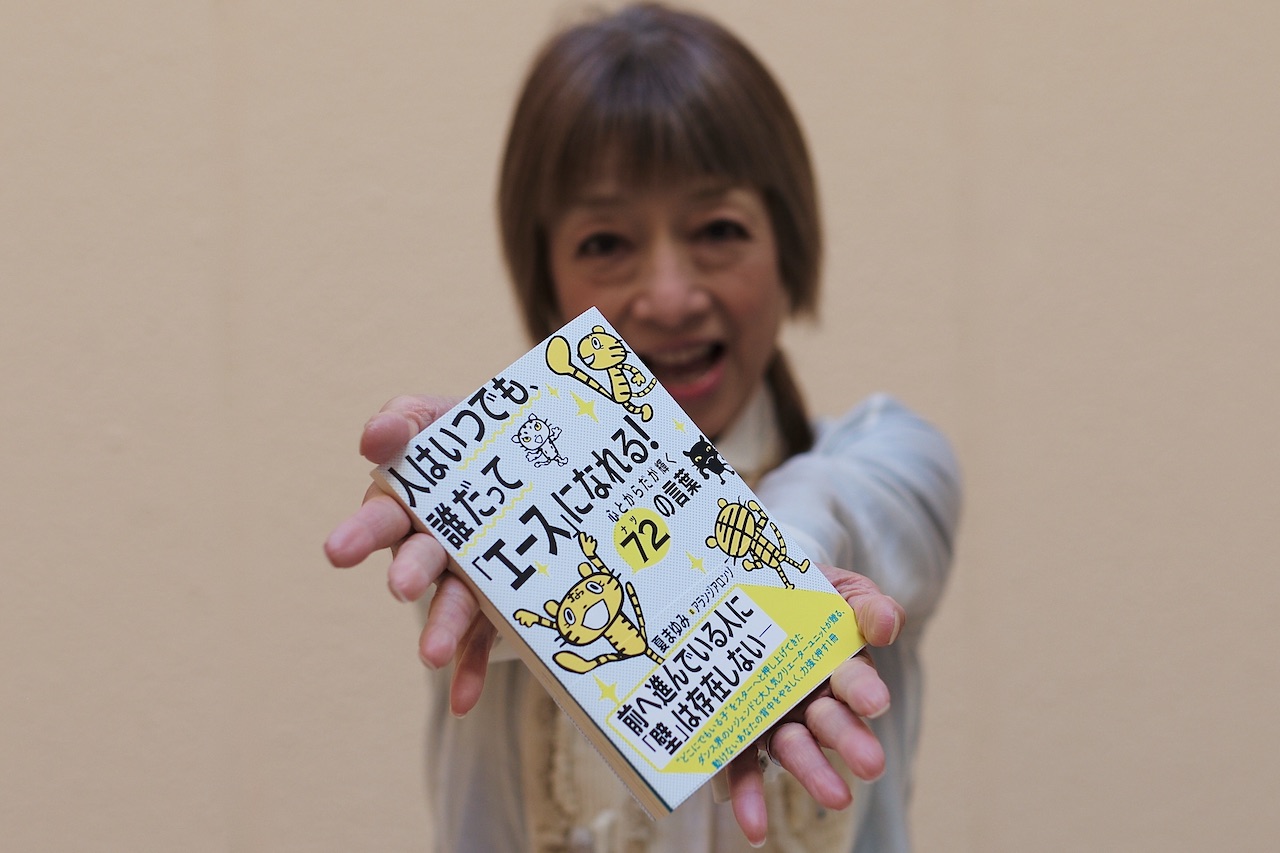 人はいつでも、
誰だって
「エース」になれる!
心とからだが輝く
ナツ
72の言葉
夏まゆみ アランジアロンゾ
前へ進んでいる人に
「壁」は存在しない―
“どこにでもいる子”をスターへと押し上げてきた
ダンス界のレジェンドと大人気クリエーターユニットが贈る、
動けないあなたの背中をやさしく、力強く押す1冊